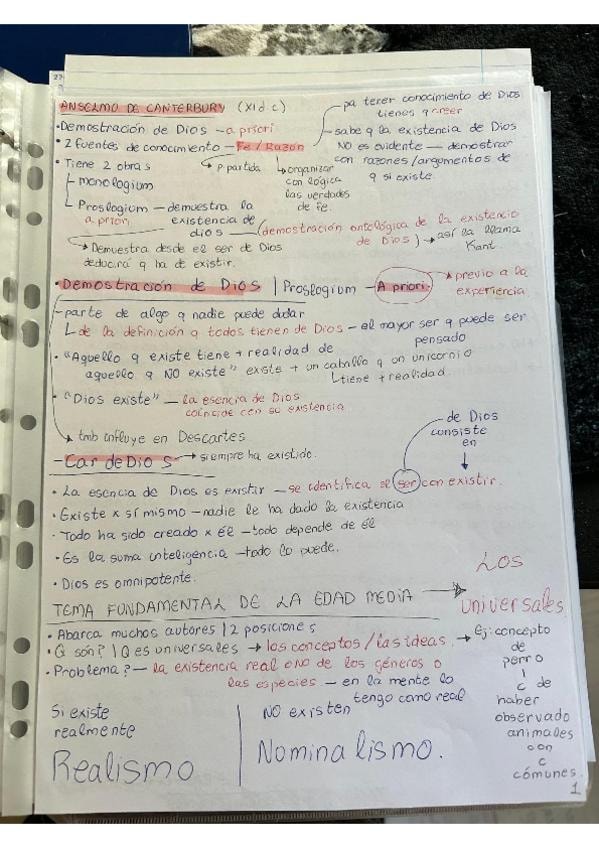 ANSELMO DE CANTERBURY (XI d.c)
pa tener conocimiento de Dios
tienes q creer
• Demostración de Dios – a priori
sabe q la existencia de Dios
NO es evidente – demostrar
con razones/argomentos de
q si existe.
• 2 fuentes de conocimiento – Fe / Razón
p partida
organizar
con lógica
las verdades
de fe.
• Tiene 2 obras
monologium
Proslogium – demuestra la
a priori existencia de
dios – (demostración ontológica de la existencia
de Dios) → así la llama
Kant.
Demuestra desde el ser de Dios
deducirá q ha de existir.
• Demostración de Dios | Proslogium – A priori.
previo a la
experiencia
– parte de algo q nadie puede dudar
de la definición q todos tienen de Dios – el mayor ser q puede ser
pensado
• "Aquello q existe tiene + realidad de
aquello q NO existe" existe + un caballo q un unicornio
tiene + realidad.
• "Dios existe" – la esencia de Dios
coincide con su existencia
tmb influye en Descartes
de Dios
consiste
en
– Car de Dios → siempre ha existido.
• La esencia de Dios es existir – se identifica el ser con existir.
• Existe x sí mismo – nadie le ha dado la existencia
• Todo ha sido creado x él – todo depende de él
• Es la suma inteligencia – todo lo puede.
• Dios es omnipotente.
TEMA FUNDAMENTAL DE LA EDAD MEDIA →
LOS
universales.
• Abarca muchos autores | 2 posiciones
• Q son? | Q es universales → los conceptos / las ideas.
→ Ej: concepto
de
perro
c de
haber
observado
animales
con
c
cómunes.
• Problema? – la existencia real o no de los géneros o
las especies – en la mente lo
tengo como real
Si existe
realmente
Realismo
NO existen
Nominalismo.
1